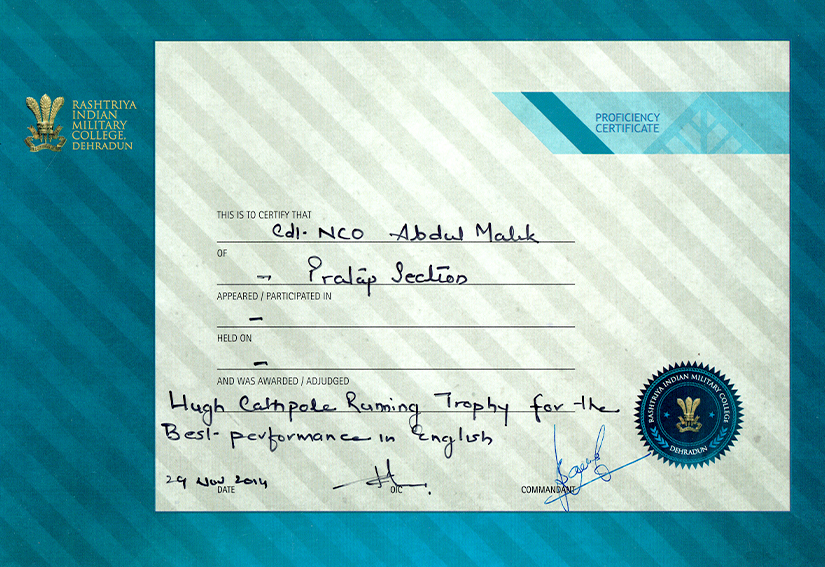 RASHTRIYA
INDIAN
MILITARY
COLLEGE,
DEHRADUN
PROFICIENCY
CERTIFICATE
THIS IS TO CERTIFY THAT
Cdt. NCO Abdul Malik
OF
- Pratap Section
APPEARED / PARTICIPATED IN
-
HELD ON
-
AND WAS AWARDED / ADJUDGED
Hugh Cathpole Running Trophy for the
Best performance in English
29 Nov 2014
DATE
OIC
COMMANDANT
RASHTRIYA INDIAN MILITARY COLLEGE
DEHRADUN